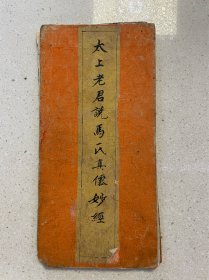 太上老君說馬氏真僊妙經